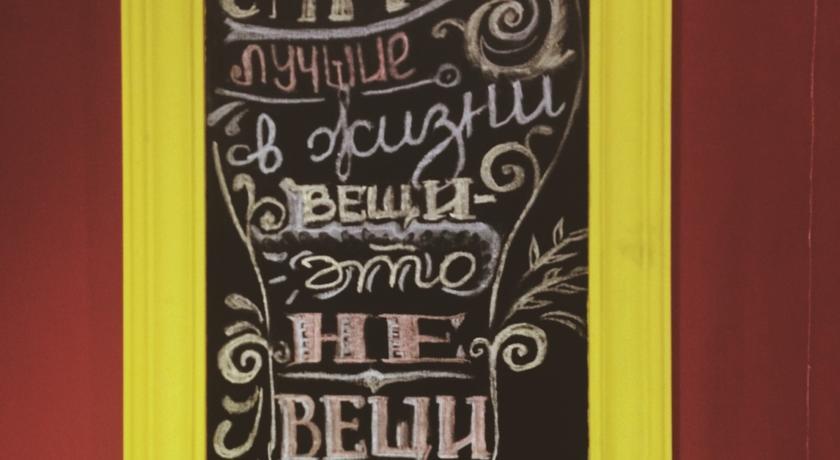 лучшие
в жизни
ВЕЩИ-
это
НЕ
ВЕЩИ